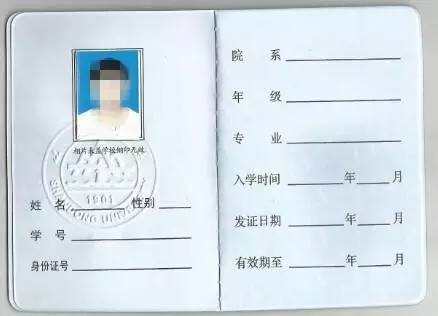 相片未盖学校钢印无效
1901
SHANDONG UNIVERSITY
姓 名 性别
学 号
身份证号
院 系
年 级
专 业
入学时间 年 月
发证日期 年 月
有效期至 年 月